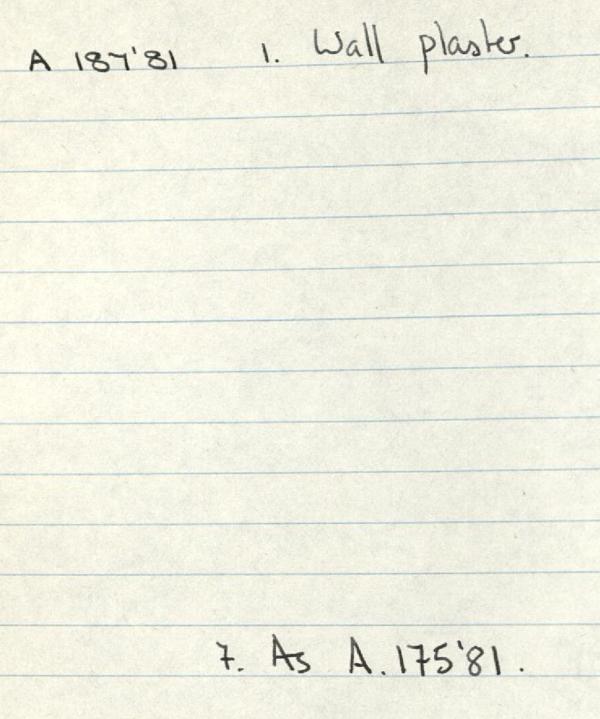 A 187'81 1. Wall plaster.
7. As A.175'81.